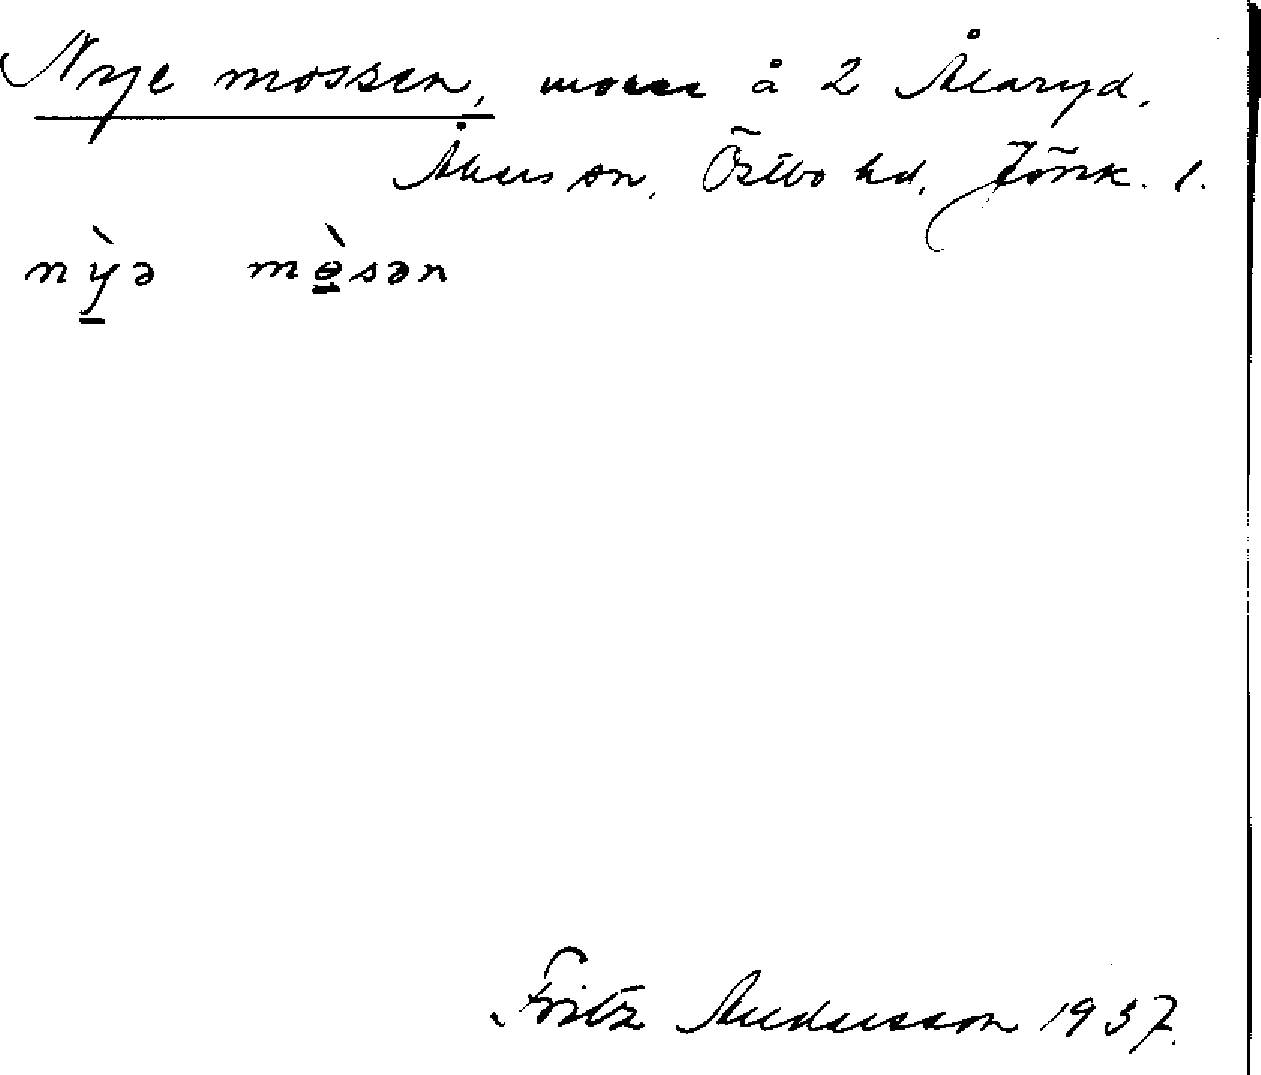 Nye mossen, mosse å 2 Ålaryd,
Åkers sn, Östbo hd, Jönk. l.
nỳə mɵ̀sən
Fritz Andersson 1937.